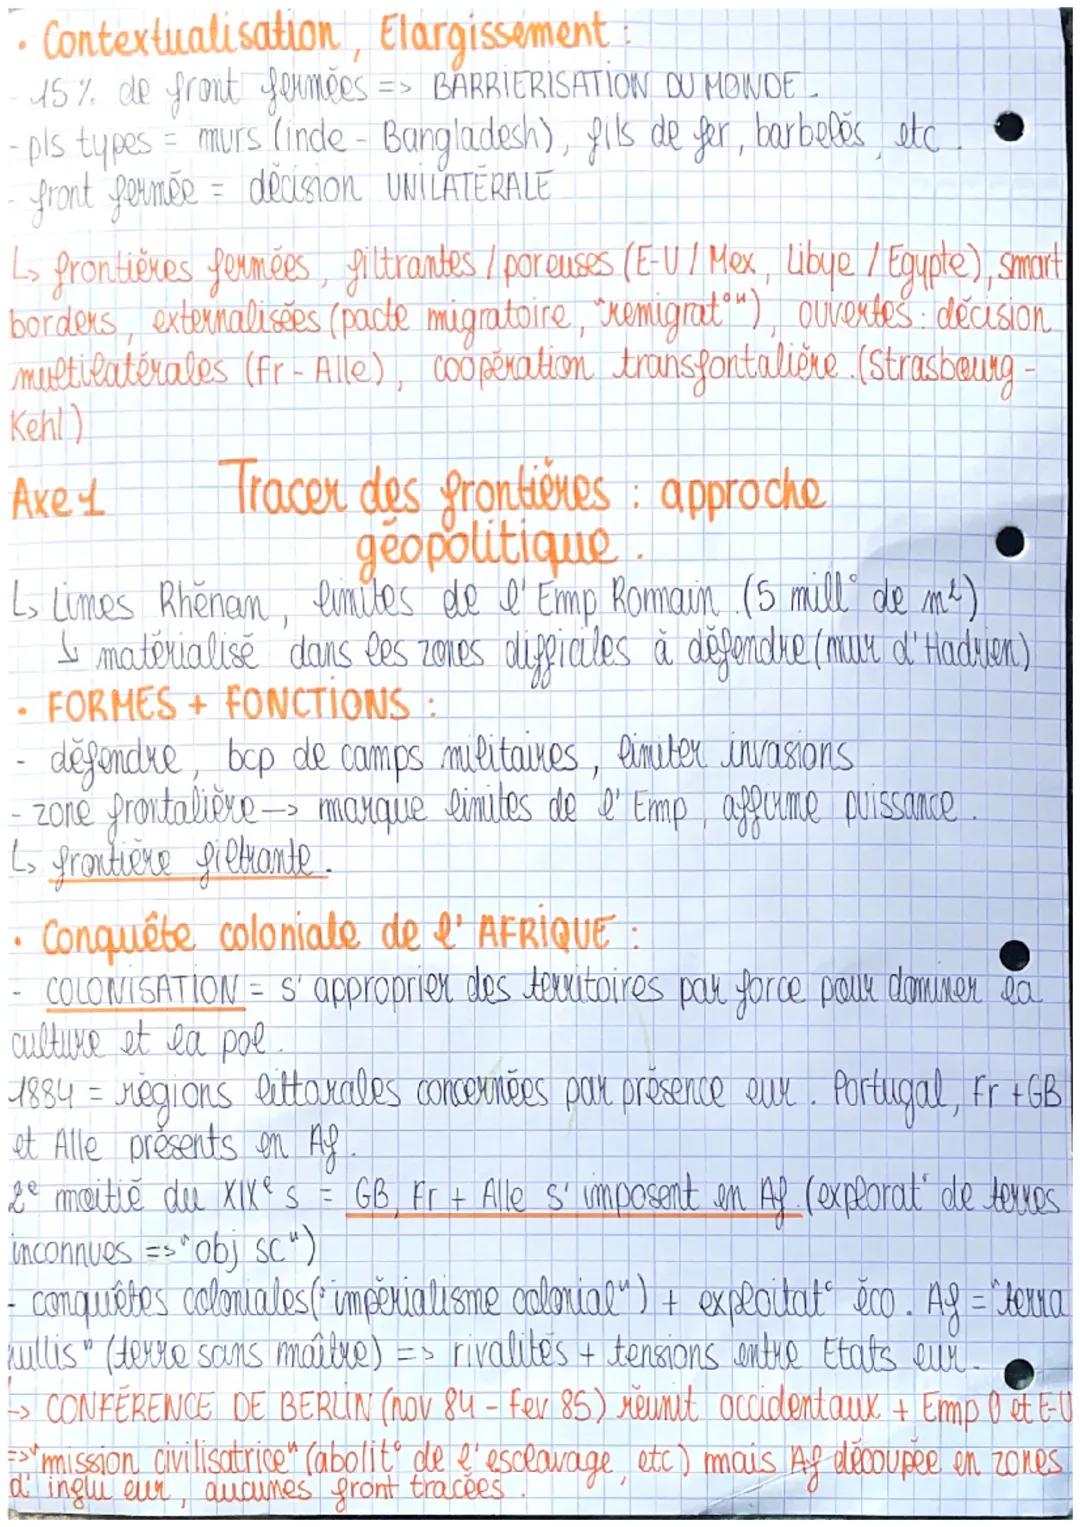 • Contextualisation, Elargissement :
- 15% de front fermées => BARRIERISATION DU MONDE.
- pls types = murs (inde - Bangladesh), fils de fer, barbelés, etc.
- front fermée = décision UNILATÉRALE
↳ frontières fermées, filtrantes / poreuses (E-U / Mex, Libye / Egypte), smart
borders, externalisées (pacte migratoire, "remigrat°"), ouvertes : décision
multilatérales (Fr - Alle), coopération transfontalière. (Strasbourg -
Kehl)
Axe 1 Tracer des frontières : approche
géopolitique.
↳ Limes Rhénan, limites de l'Emp Romain. (5 mill° de m²)
↳ matérialisé dans les zones difficiles à défendre (mur d'Hadrien)
• FORMES + FONCTIONS :
- défendre, bcp de camps militaires, limiter invasions
- zone frontalière → marque limites de l'Emp, affirme puissance.
↳ frontière filtrante.
• Conquête coloniale de l'AFRIQUE :
- COLONISATION = s'approprier des territoires par force pour dominer la
culture et la pol.
1884 = régions littorales concernées par présence eur. Portugal, Fr + GB
et Alle présents en Af.
2e moitié du XIXe s = GB, Fr + Alle s'imposent en Af. (explorat° de terres
inconnues => "obj sc")
- conquêtes coloniales ("impérialisme colonial") + exploitat° éco. Af = "terra
nullis" (terre sans maître) => rivalités + tensions entre Etats eur.
↳ CONFÉRENCE DE BERLIN (nov 84 - Fev 85) réunit occidentaux + Emp O et E-U
=> "mission civilisatrice" (abolit° de l'esclavage, etc) mais Af découpée en zones
d'inglu eur, aucunes front tracées.